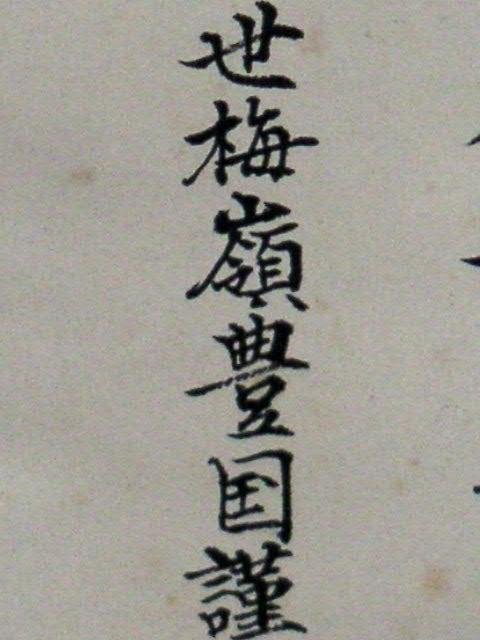 世梅嶺豊国謹